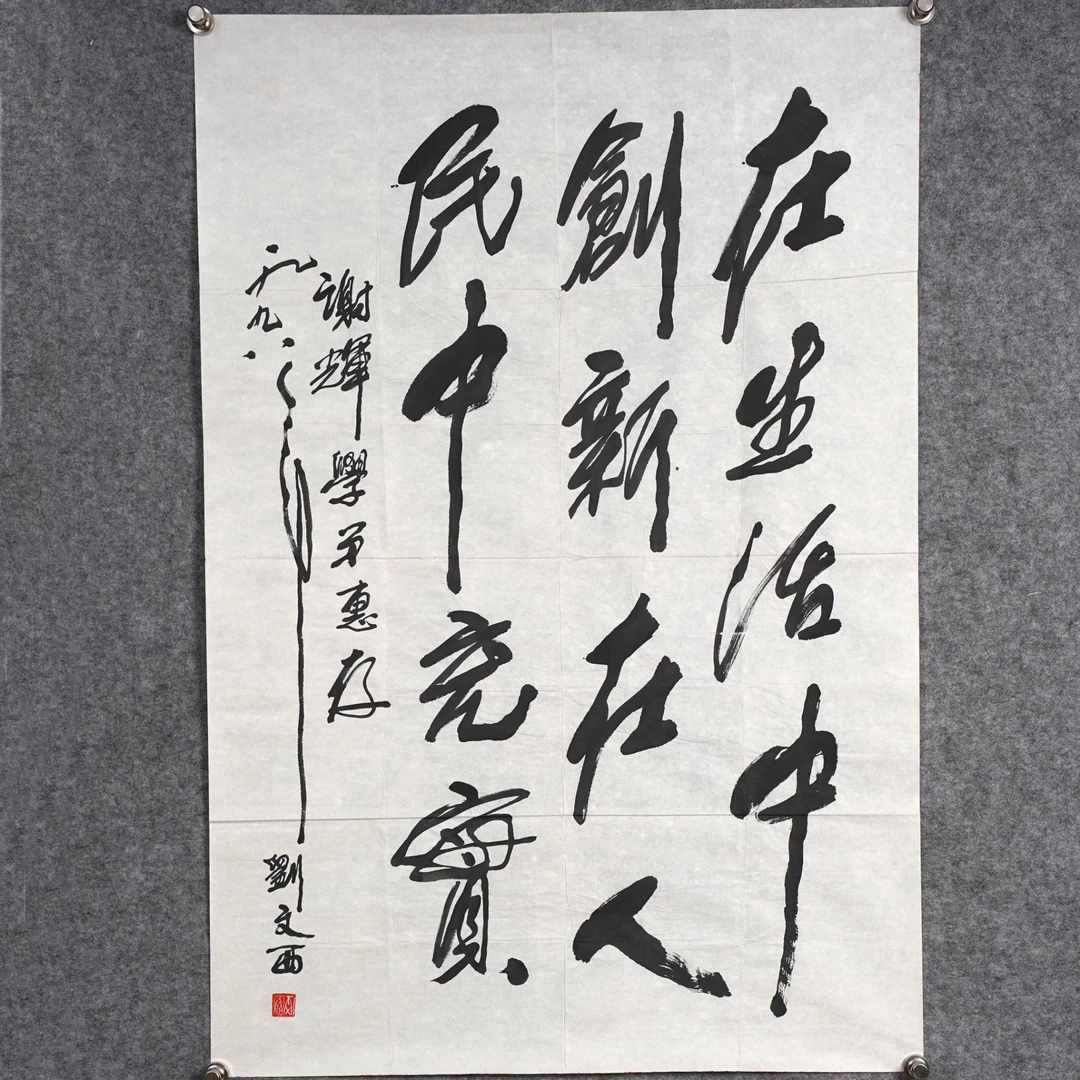 在生活中
創新在人
民中充實
謝輝學弟惠存
一九九八
劉文西